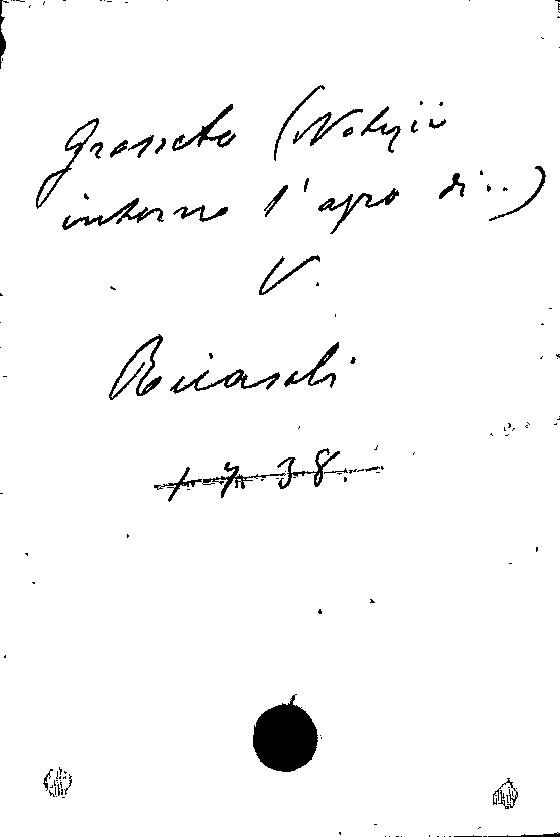 Grosseto (Notizie
intorno l'agro di...)
V.
Ricasoli
1. 7. 38.